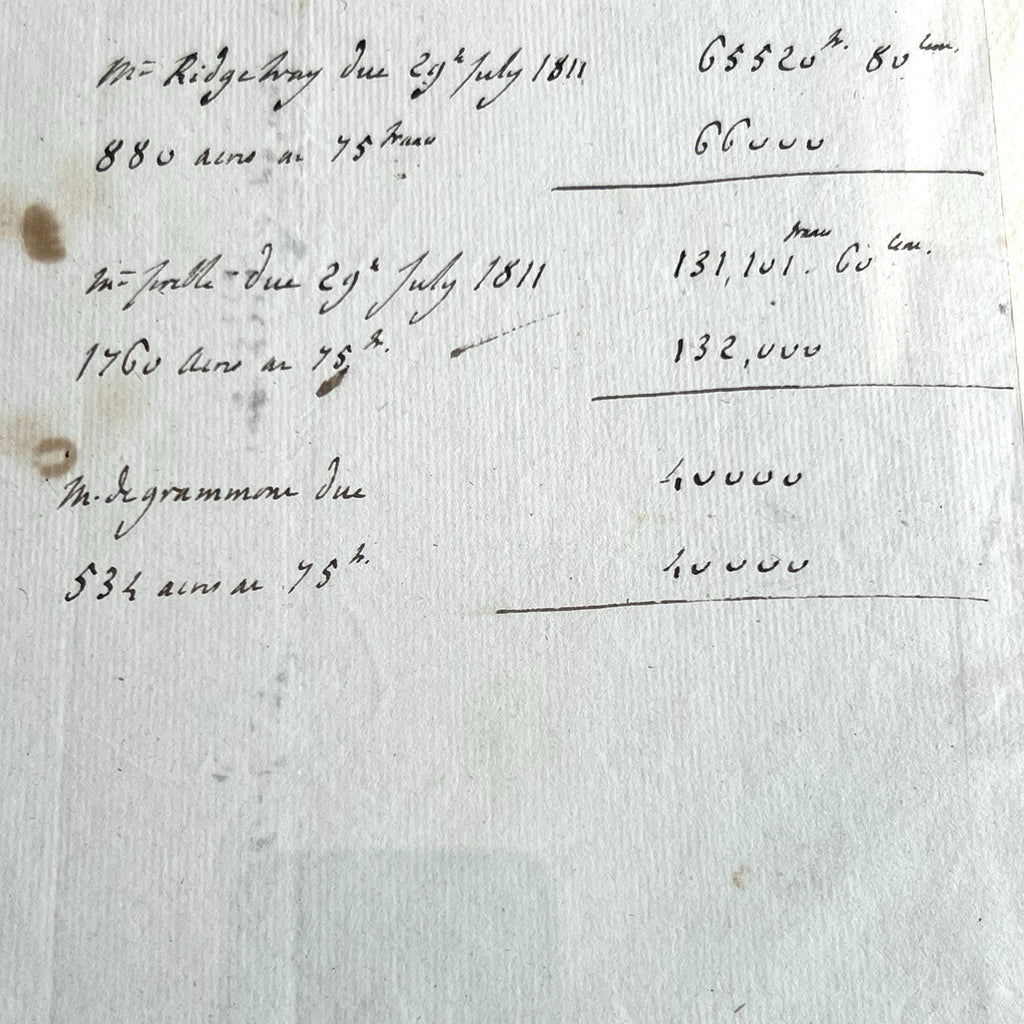 Mr Ridgeway due 29th July 1811 65520 fr. 80 Cen.
880 acres at 75 francs 66000
Mr due 29th July 1811 131,101. francs 60 Cen.
1760 acres at 75 fr. 132,000
M. de grammont due 40000
534 acres at 75 fr. 40000